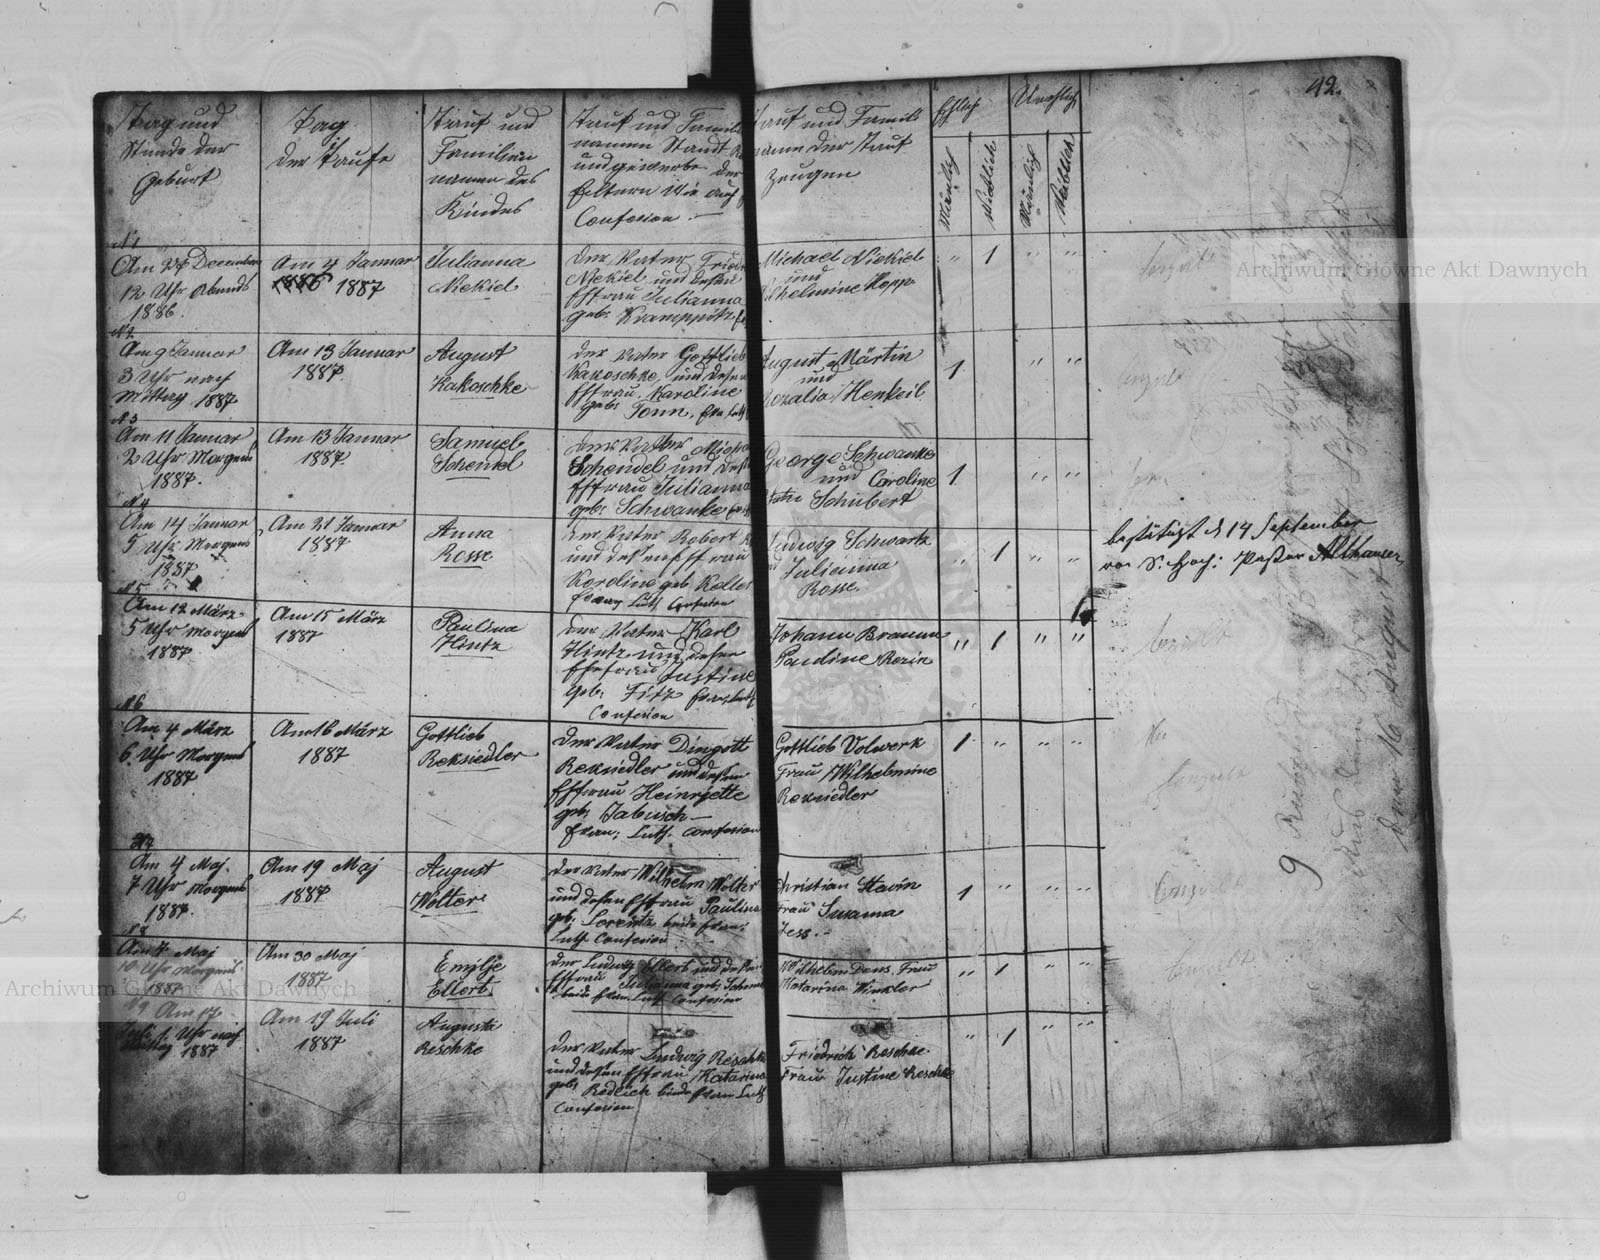 42.
Tag und
Stunde der
Geburt
Tag
der Taufe
Tauf und
Familien
namen des
Kindes
Tauf und Famili
namen Standt
und gewerbe der
Eltern Wie auch
Confesion
Tauf und Famili
name der Tauf
Zeugen
Ehlich
Unehlich
Mänlich
Weiblich
Mänlich
Weiblich
N1
Am 24 December
12 Uhr Abends
1886.
Am 4 Januar
1886 1887
Julianna
Niekiel
der Vater Friedr
Niekiel und desen
Ehfrau Julianna
geb: Kramppitz
Michael Niekiel
und
Wilhelmine Hopp
" 1 " "
N2
Am 9 Januar
3 Uhr nach
mittag 1887
Am 13 Januar
1887.
August
Kakoschke
der Vater Gottlieb
Kakoschke und desen
Ehfrau Karoline
geb: Tonn, Eva Luth
August Märtin
und
Rozalia Henkeil
1 " "
N3
Am 11 Januar
2 Uhr Morgens
1887.
Am 13 Januar
1887.
Samuel
Schendel
der Vatter Micha
Schendel und desen
Ehfrau Julianna
geb: Schwanke
George Schwanke
und Caroline
Schubert
1 " "
N4
Am 14 Januar
5 Uhr Morgens
1887
Am 21 Januar
1887
Anna
Rosse
der Vater Robert
und desen Ehfrau
Karoline geb Keller
Evang Luth Confesion
Ludwig Schwartz
Julianna
Rosse.
" 1 " "
bestätigt d 14 September
von S. Hoch: Pastor Althauser
N5
Am 12 März
5 Uhr morgens
1887
Am 15 März
1887
Paulina
Hintz
der Vater Karl
Hintz und desen
Ehefrau Justine
geb: Fitz Evan, Luth
Confesion
Johann Braun
Pauline Rozin
" 1 " "
N6
Am 4 März
6 Uhr Morgens
1887
Am 16 März
1887
Gottlieb
Reksiedler
der Vater Dingott
Reksiedler und desen
Ehfrau Heinryette
geb: Jabusch
Evan; Luth. Confesion
Gottlieb Volwerk
Frau Wilhelmine
Reksiedler
1 " " "
N7
Am 4 Maj.
7 Uhr Morgens
1887.
Am 19 Maj
1887
August
Wolter
der Vater Wilhelm Wolter
und desen Ehfrau Paulina
geb: Lorentz beide Evan:
Luth Confesion
Christian Stavin
Frau Susanna
Jess.
1 " " "
N8
Am 7 Maj
10 Uhr Morgens
1887
Am 30 Maj
1887
Emilje
Ellert
der Ludwig Ellert und desen
Ehfrau Julianna geb:
beide Evan: Luth Confesion
Wilhelm Dens, Frau
Katarina Winkler
" 1 " "
N9 Am 17
Juli 1 Uhr nach
mittag 1887
Am 19 Juli
1887
Augusta
Reschke
der Vater Ludwig Reschke
und desen Ehfrau Katarina
geb: Redlich beide Evan Luth
Confesion
Friedrich Reschke
Frau Justine Reschke
" 1 " "
Archiwum Główne Akt Dawnych
Archiwum Główne Akt Dawnych